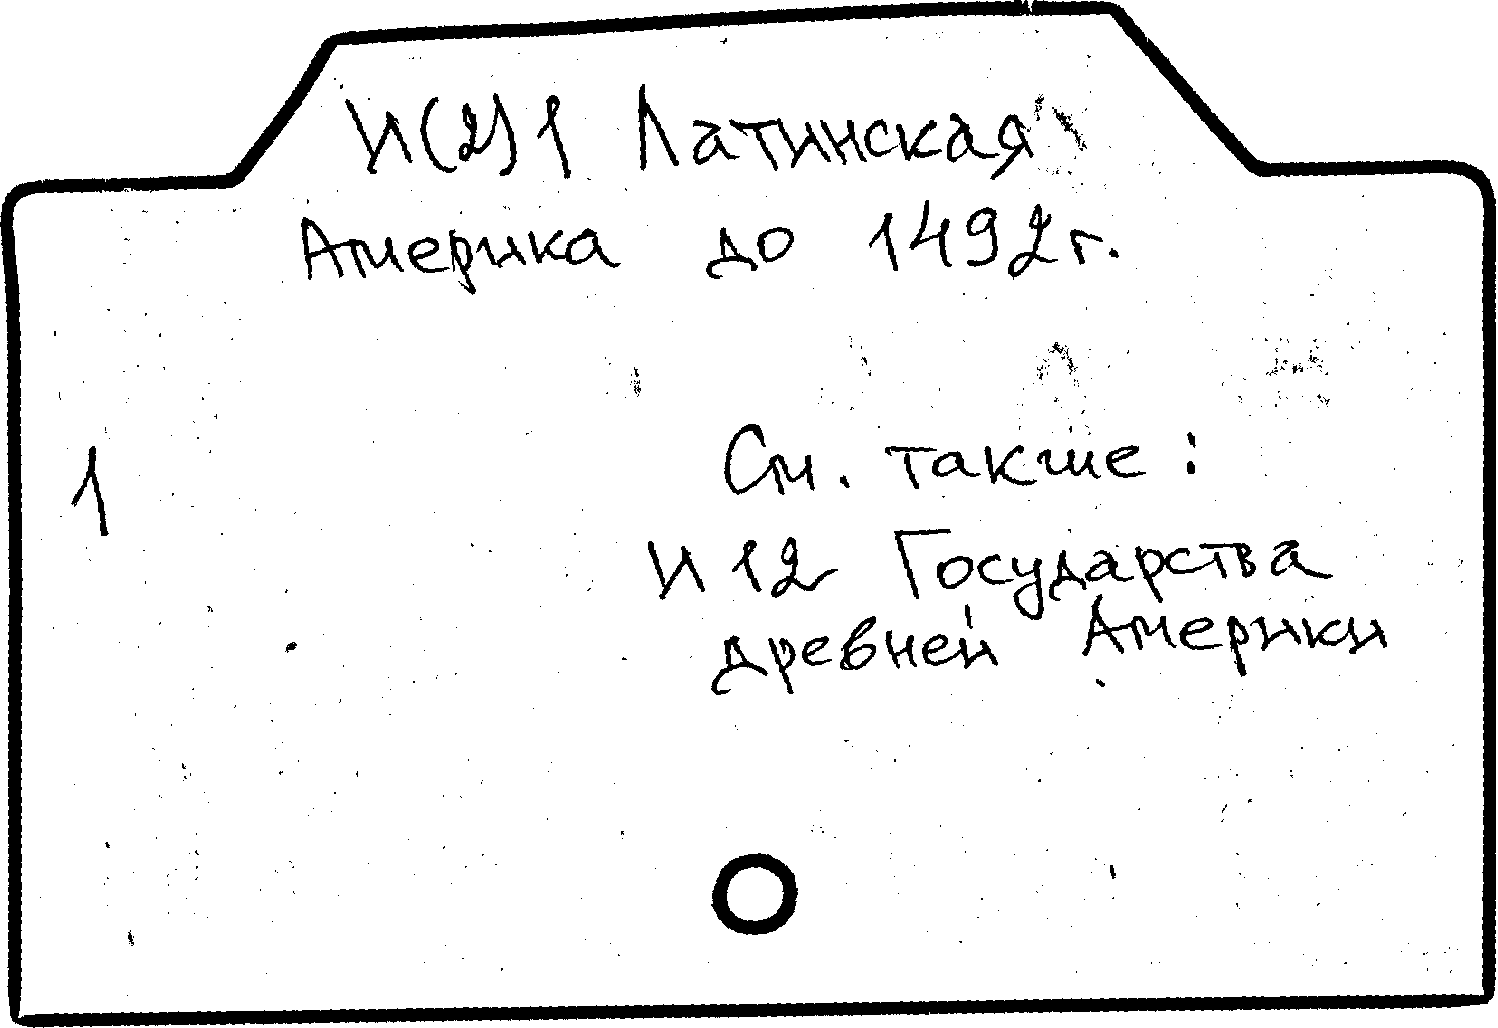 И(2)1 Латинская
Америка до 1492 г.
См. также:
1
И 12 Государства
древней Америки